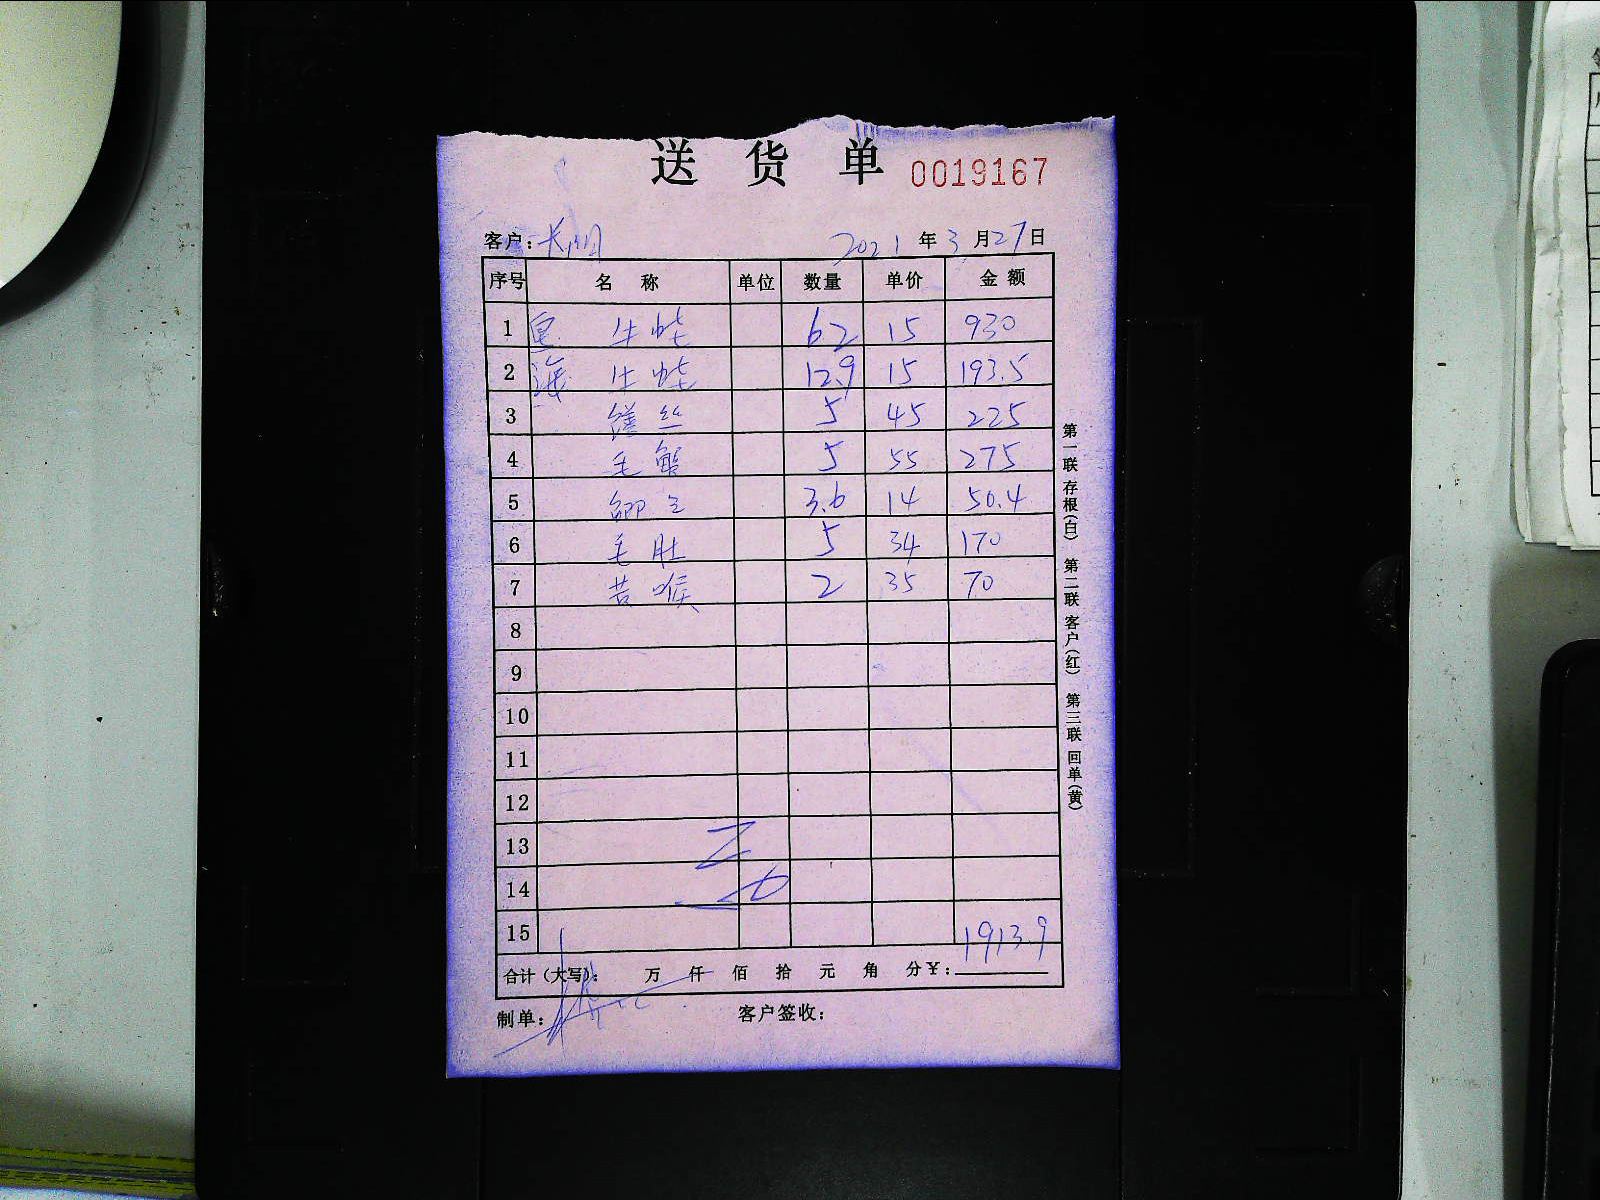 送 货 单 0019167
客户: 2021 年 3 月 27 日
序号 名 称 单位 数量 单价 金 额
1 62 15 930
2 海 12.9 15 193.5
3 丝 5 45 225
4 毛蟹 5 55 275
5 3.6 14 50.4
6 毛肚 5 34 170
7 苦喉 2 35 70
8
9
10
11
12
13
14
15 1913.9
合计(大写): 万 仟 佰 拾 元 角 分¥:
制单: 客户签收:
第一联 存根(白) 第二联 客户(红) 第三联 回单(黄)